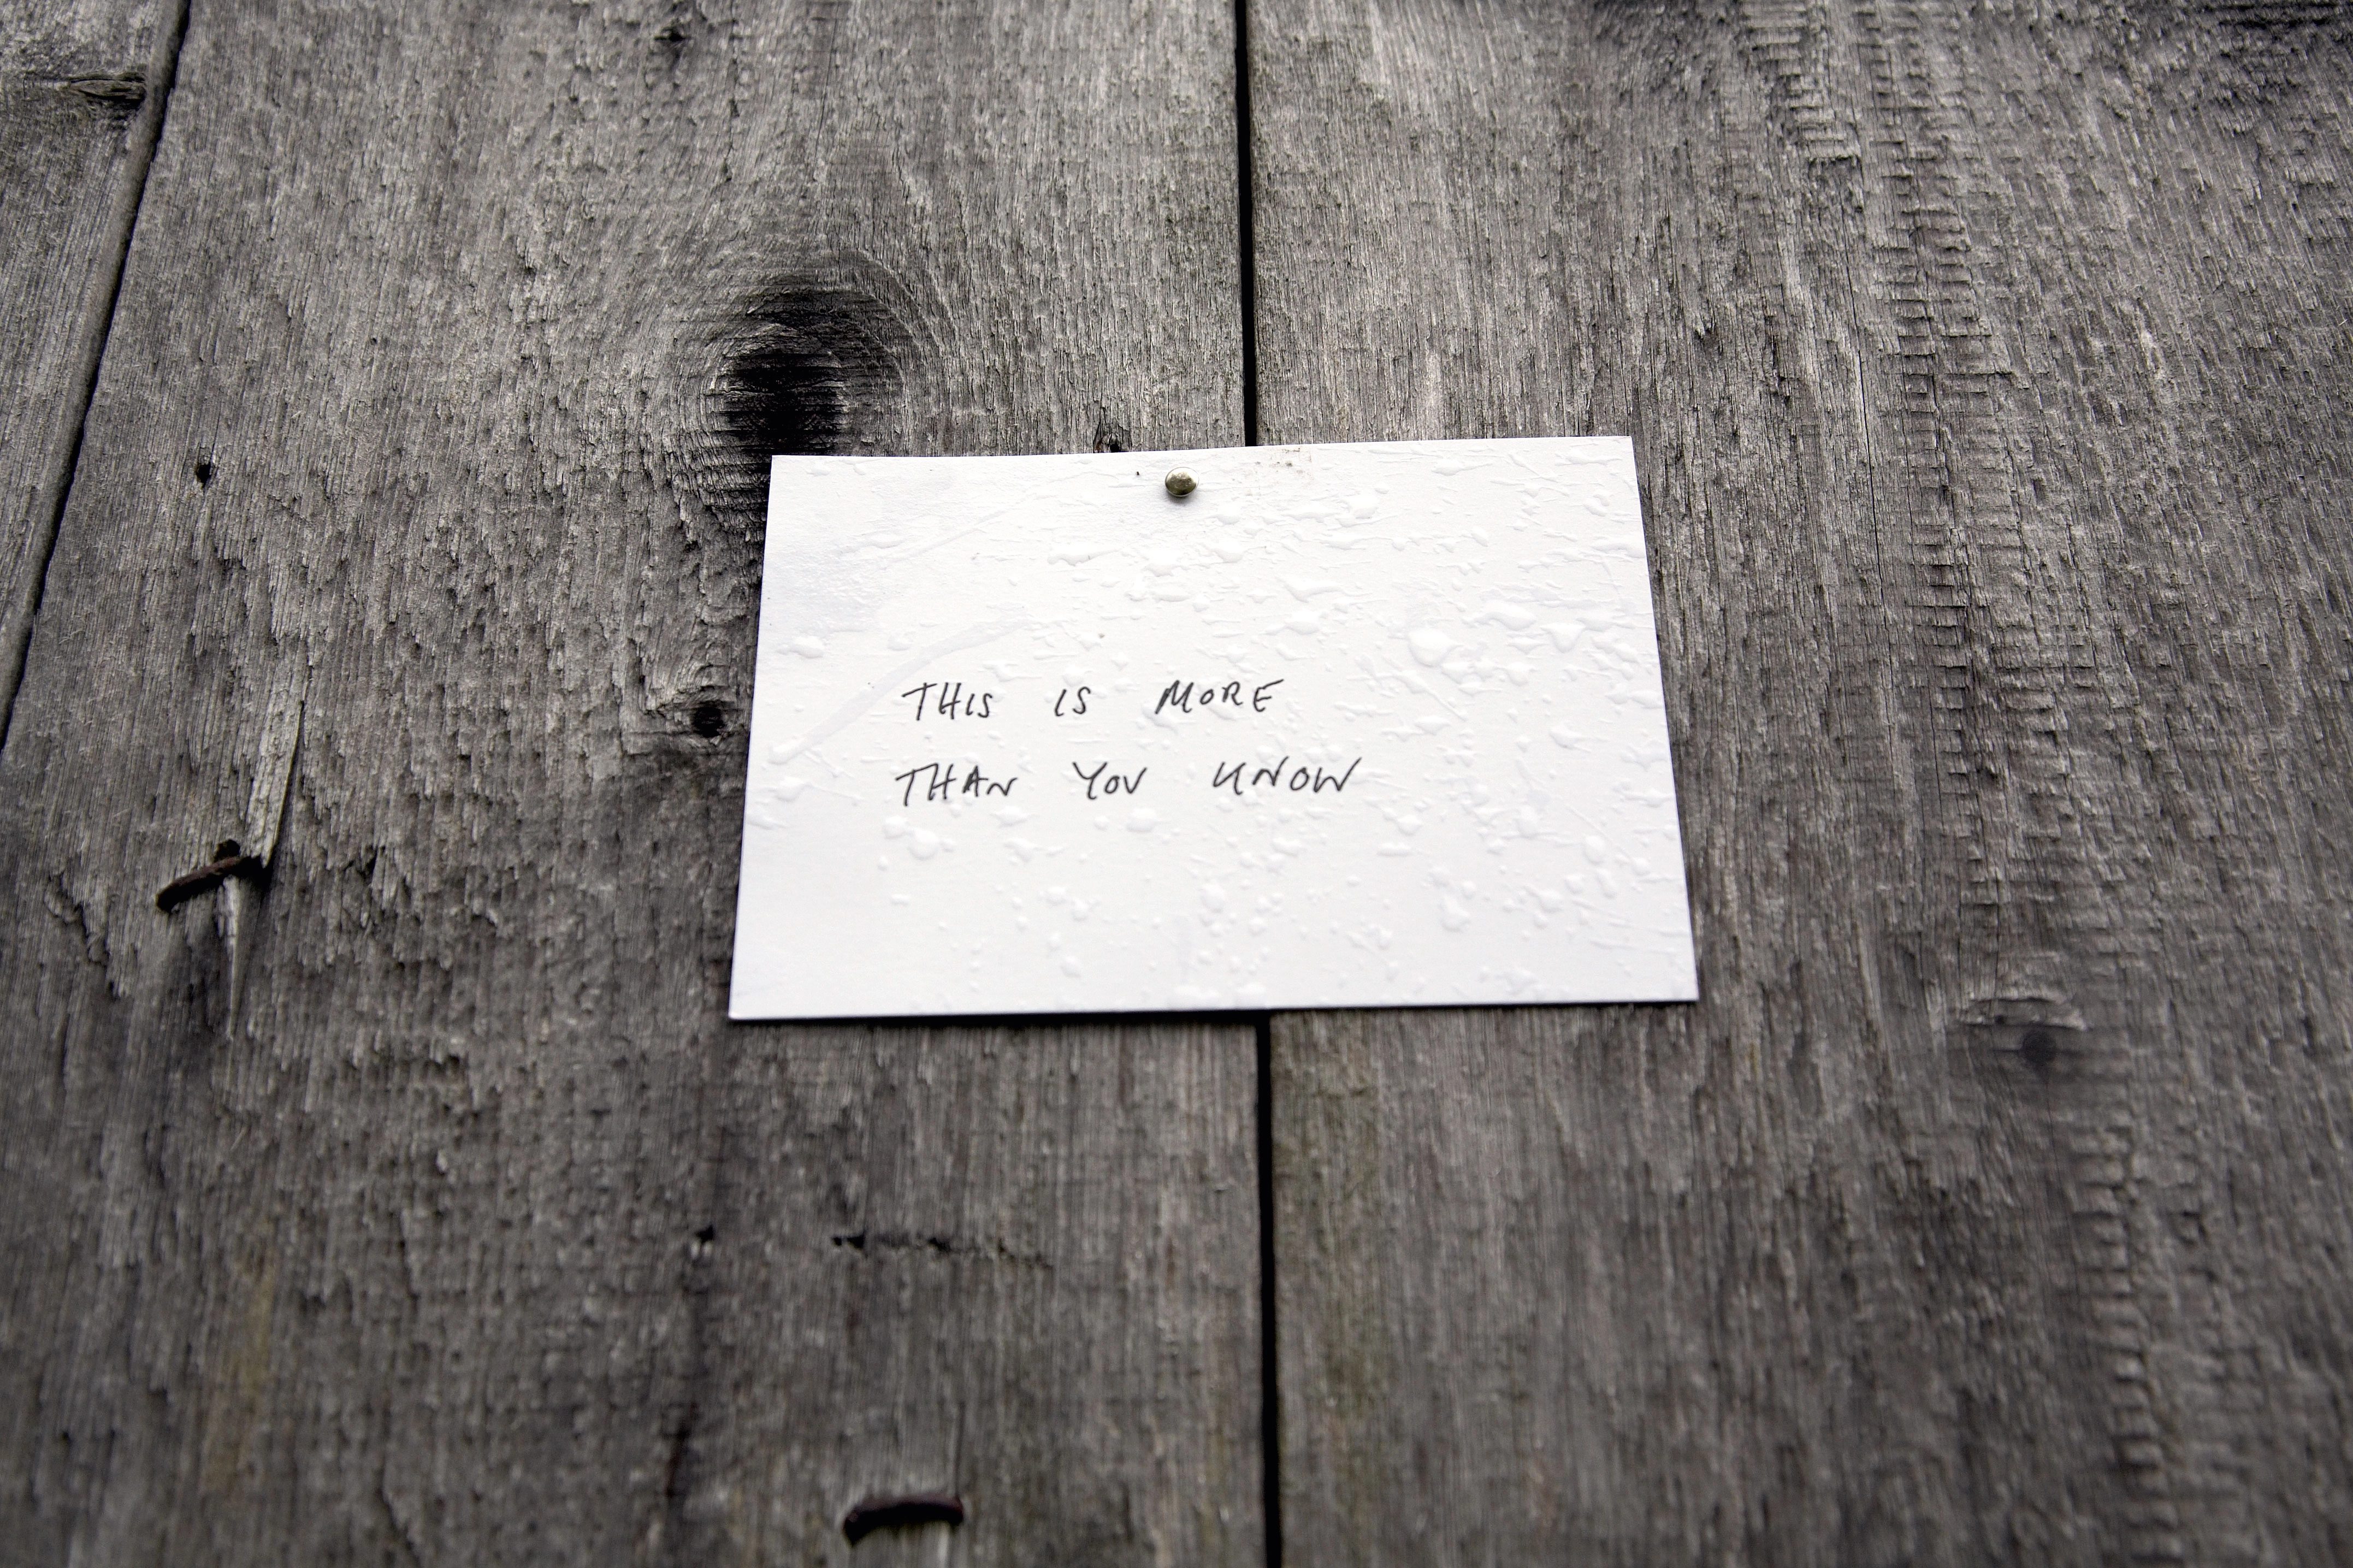 THIS IS MORE
THAN YOU KNOW